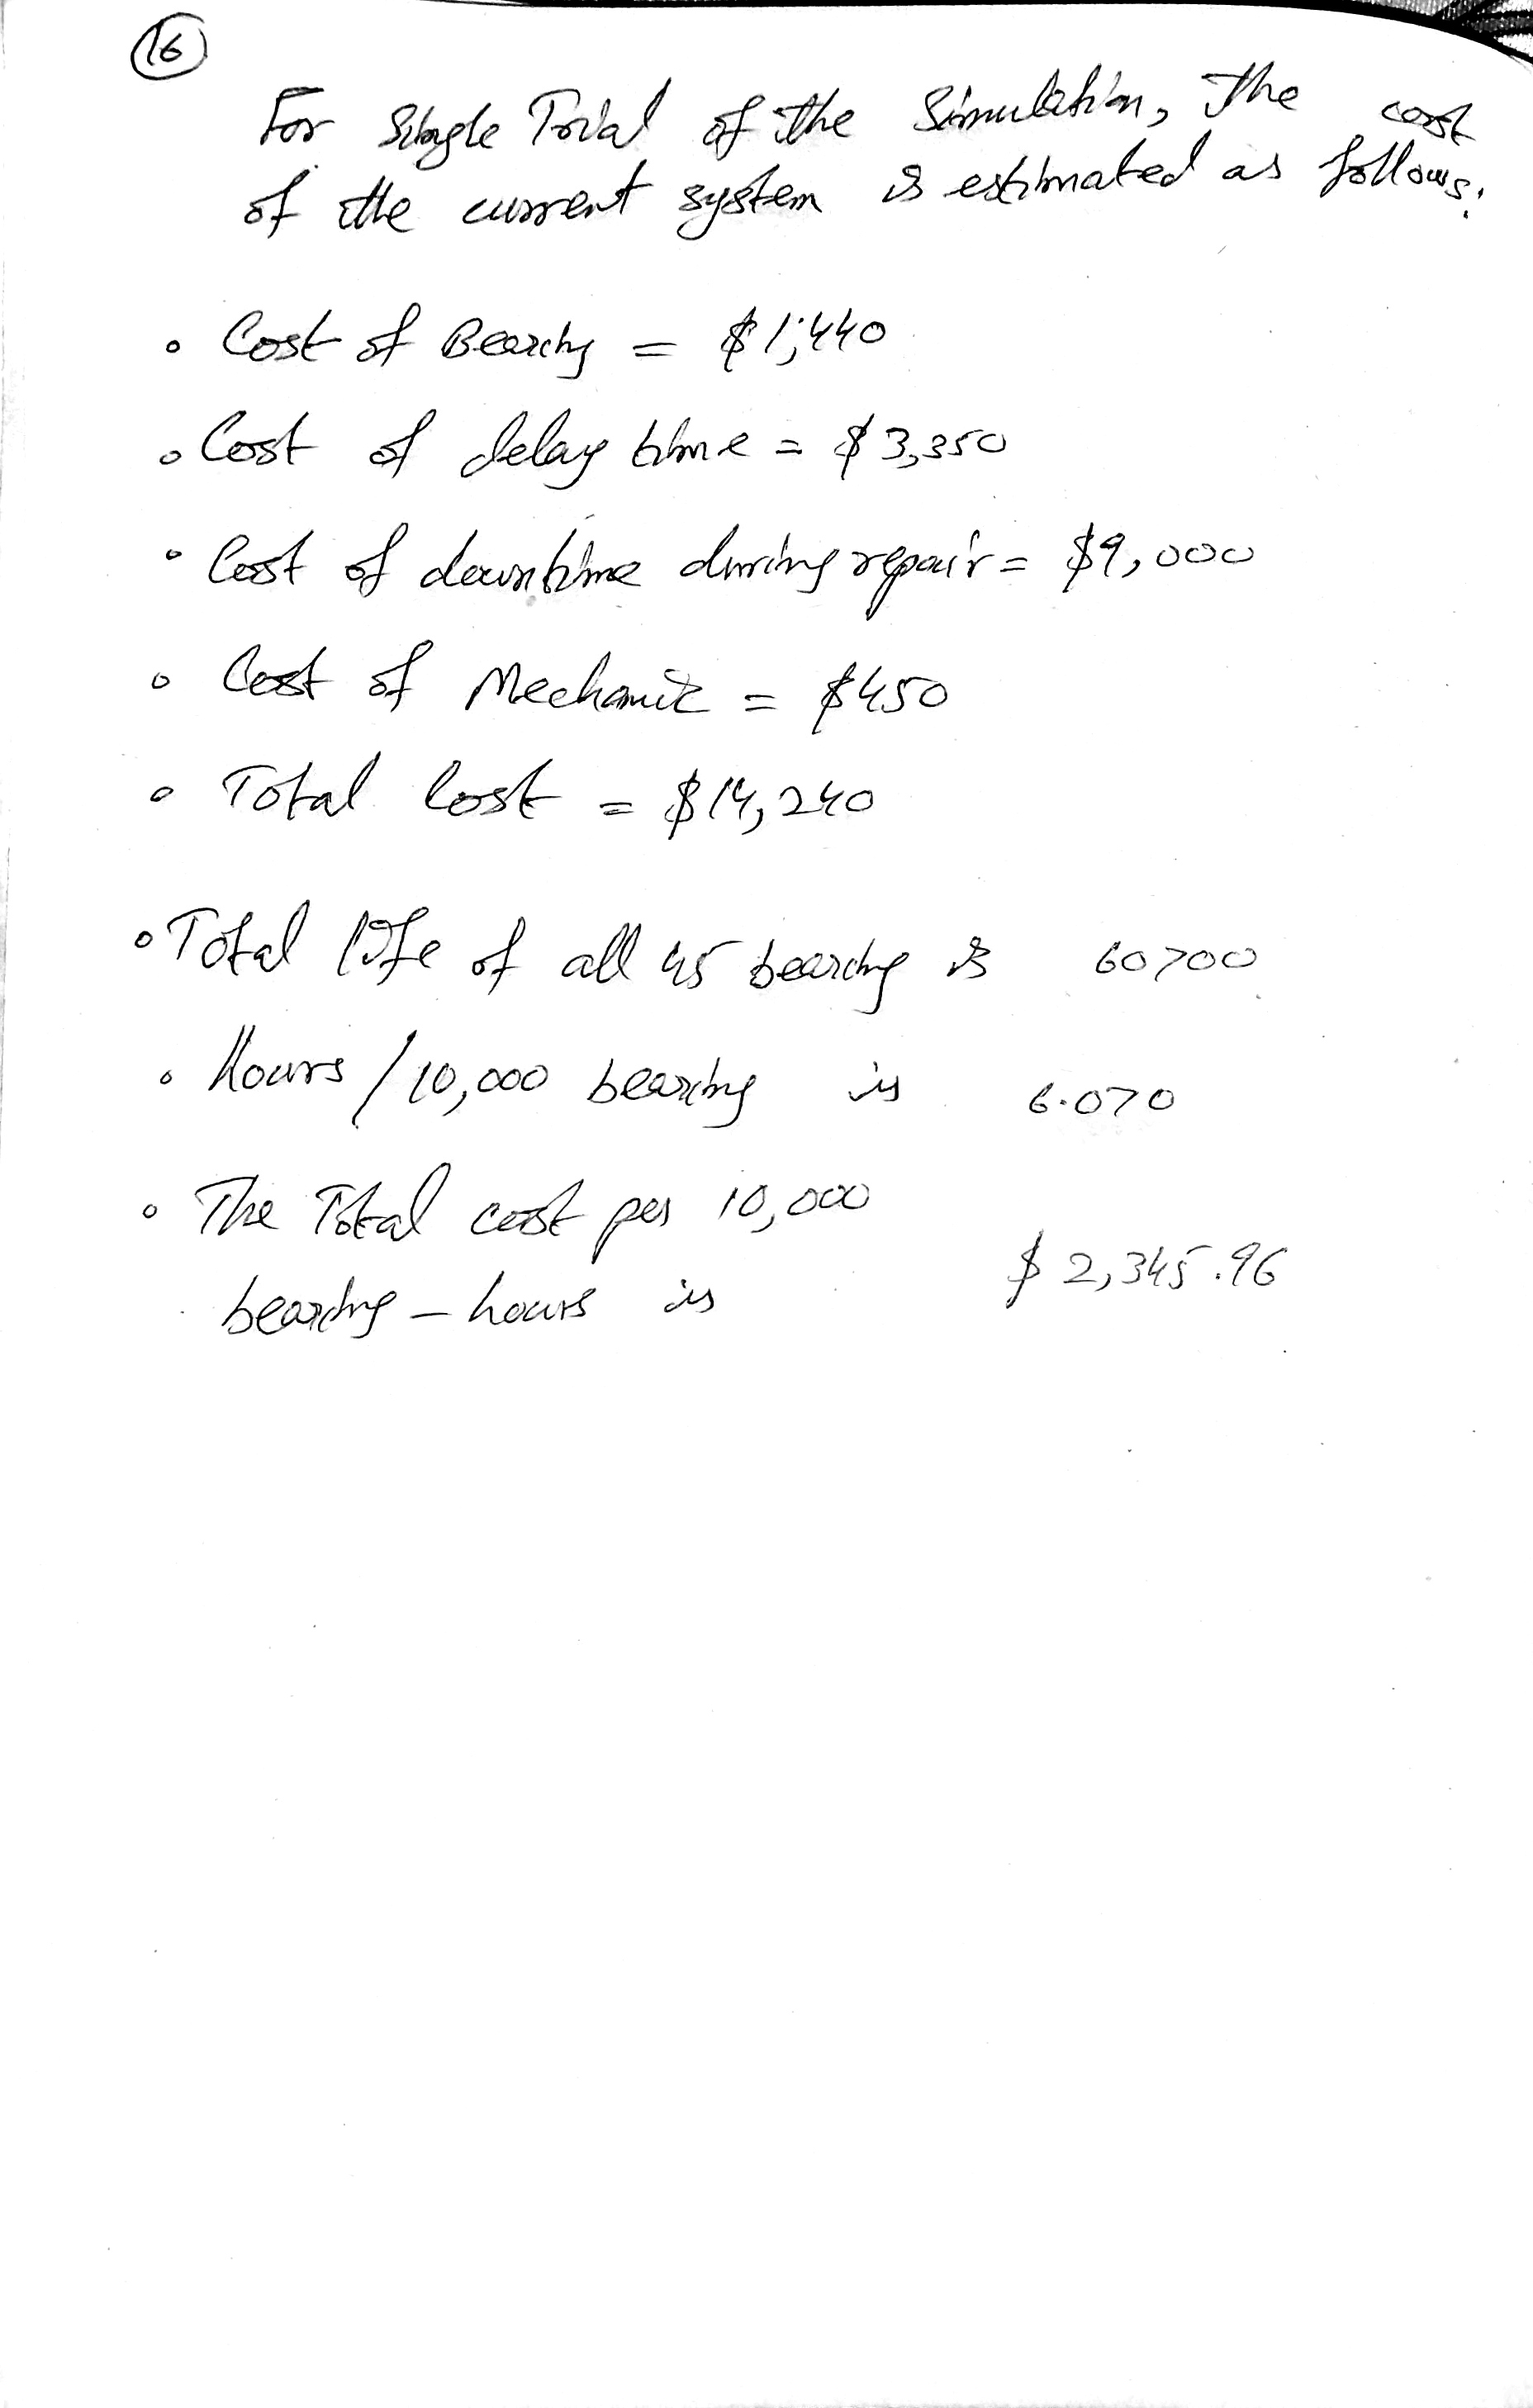 16
For Single Trial of the Simulation, The cost
of the current system is estimated as follows:
• Cost of Bearing = $1,440
• Cost of delay time = $3,350
• Cost of downtime during repair = $9,000
• Cost of Mechanic = $450
• Total Cost = $14,240
• Total life of all 45 bearing is 60700
• Hours / 10,000 bearing is 6.070
• The Total cost per 10,000
bearing - hours is $2,345.96